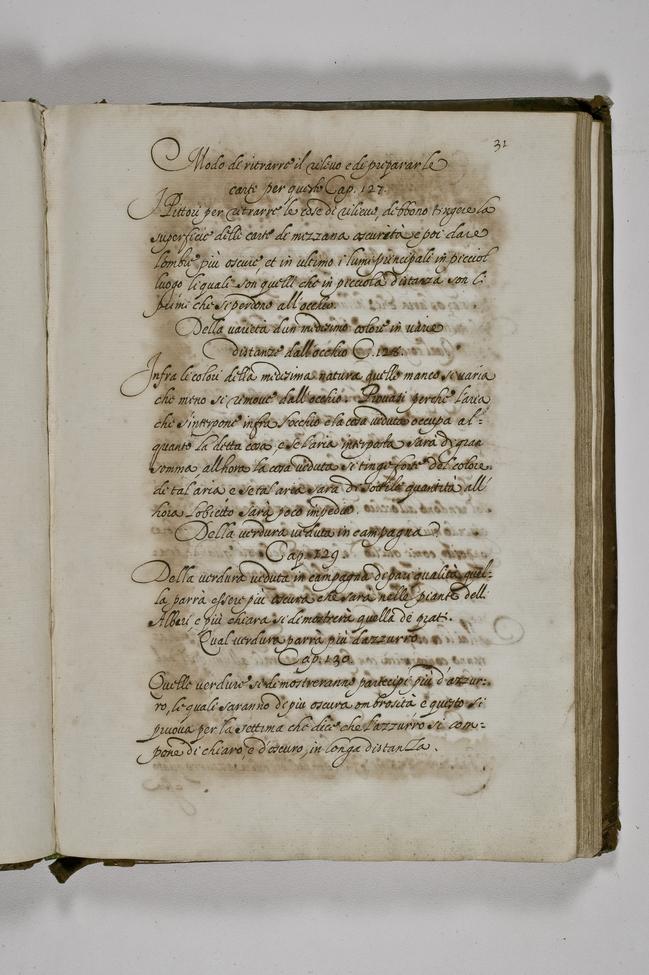 31
Modo de ritrarre il rilevo e de preparar le
carte per questo Cap. 127.
I Pittori per ritrarre le cose di rilievo, debbono tingere la
superficie delle carte de mezzana oscurità e poi dare
l'ombre più oscure, et in ultimo i lumi principali in picciol
luogo li quali son quelli che in picciola distanza son li
primi che si perdono all'occhio.
Della varietà d'un medesimo colore in varie
distanze dall'occhio C. 128.
Infra li colori della medesima natura quello manco si varia
che meno si remove dall'occhio. Provasi perche l'aria
che s'interpone infra l'occhio e la cosa veduta occupa al-
quanto la detta cosa, e se l'aria interposta sarà di gran
somma, all'hora la cosa veduta si tinge forte del colore
di tal aria e se tal aria sarà di sottile quantità all'
hora l'obietto sarà poco impedio.
Della verdura veduta in campagna
Cap. 129
Della verdura veduta in campagna de pari qualità quel-
la parrà essere piu oscura che sarà nelle piante delli
Alberi e più chiara si demostrerà quella de prati.
Qual verdura parrà più d'azzurro.
Cap. 130
Quelle verdure se demostreranno partecipe più d'azzur-
ro, le quali saranno de piu oscura ombrosità e questo si
pruova per la settima che dice che l'azzurro si com-
pone di chiaro, e d'oscuro, in longa distanza.